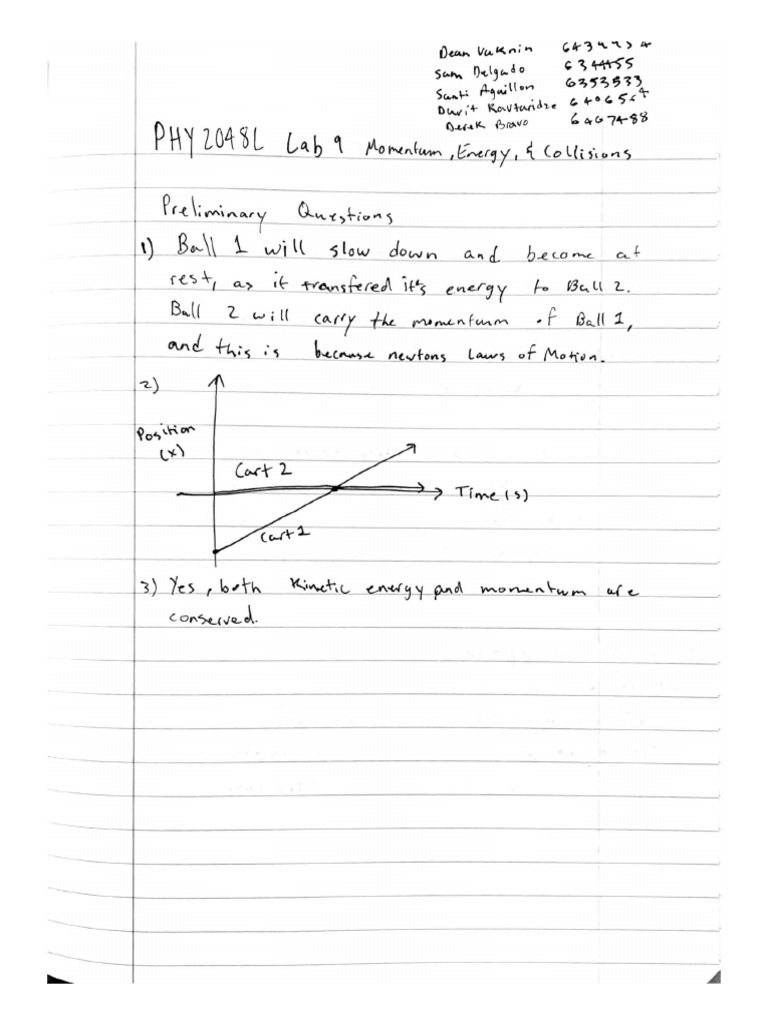 Dean Vaknin
Sam Delgado
Santi Aguillon 6353533
Davit Kavtaridze
Derek Bravo 6407488
PHY2048L Lab 9 Momentum, Energy, & Collisions
Preliminary Questions
1) Ball 1 will slow down and become at
rest, as it transfered it's energy to Ball 2.
Ball 2 will carry the momentum of Ball 1,
and this is because newtons Laws of Motion.
2)
Position
(x)
Cart 2
Time (s)
Cart 1
3) Yes, both Kinetic energy and momentum are
conserved.